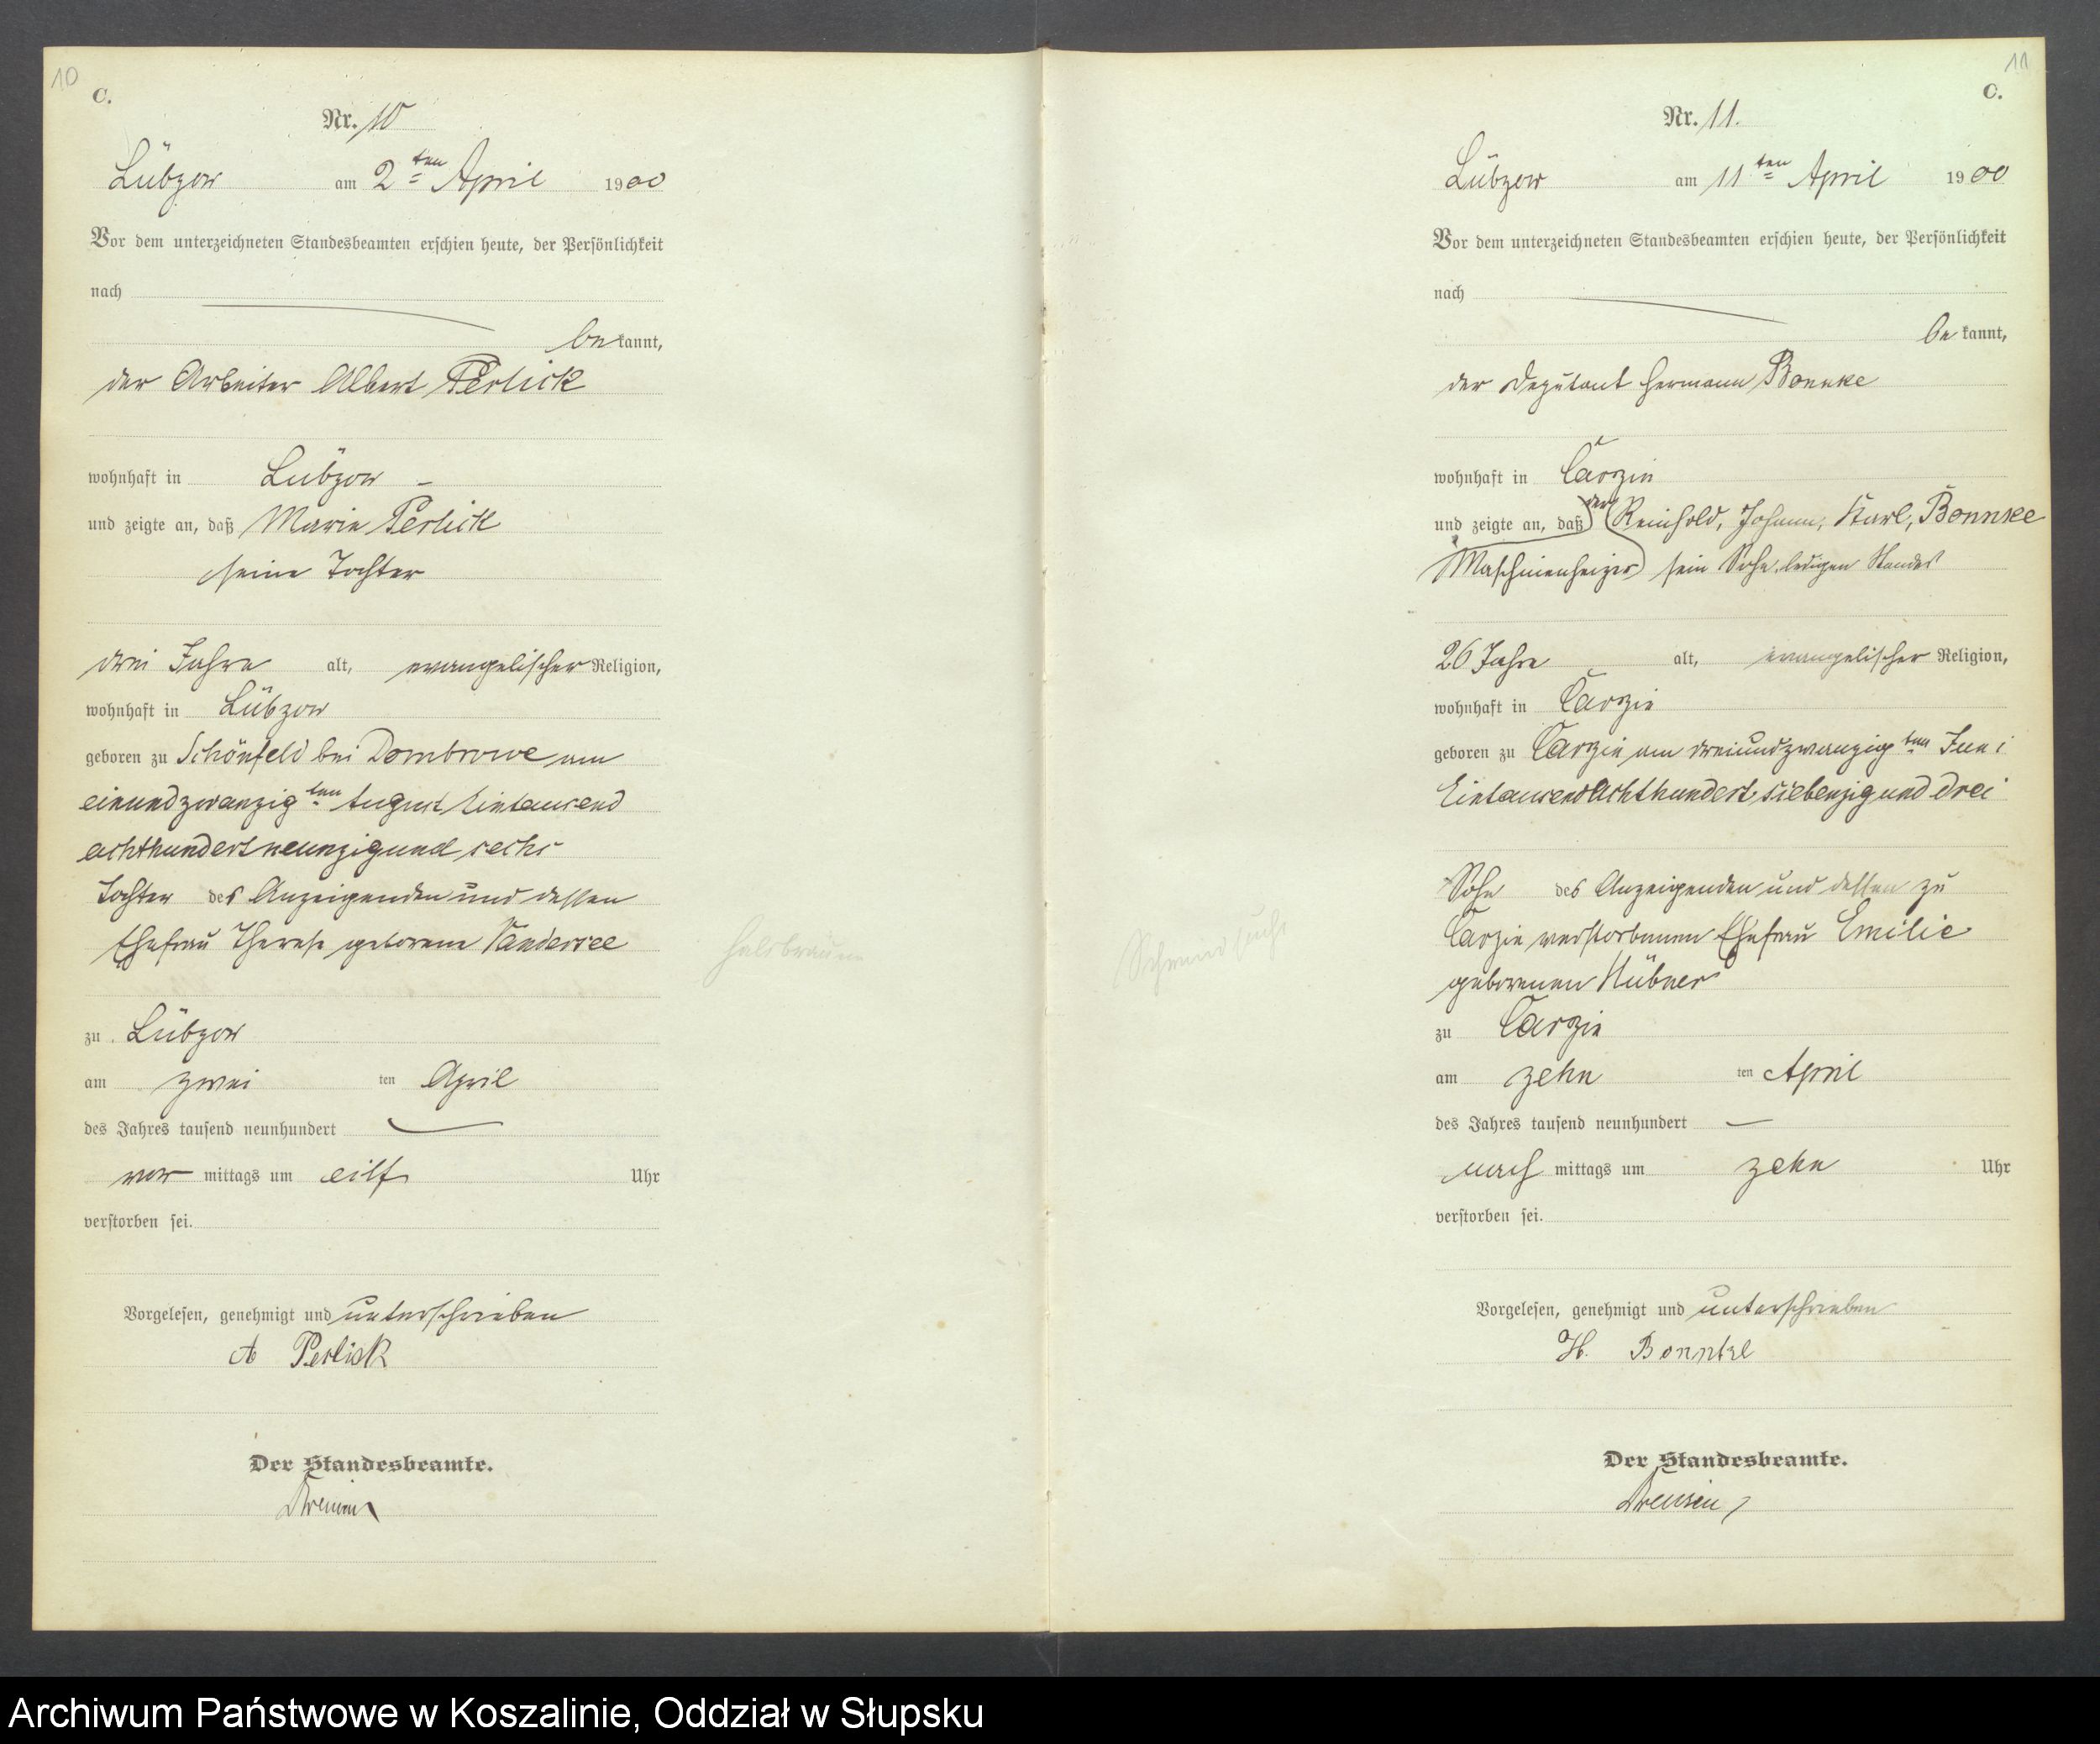 10
C.
Nr. 10
Lübzow am 2ten April 1900
Vor dem unterzeichneten Standesbeamten erschien heute, der Persönlichkeit
nach
bekannt,
der Arbeiter Albert Perlick
wohnhaft in Lübzow
und zeigte an, daß Marie Perlick
seine Tochter
drei Jahre alt, evangelischer Religion,
wohnhaft in Lübzow
geboren zu Schönfeld bei Dombrowe am
einundzwanzigten August Eintausend
achthundert neunzig und sechs
Tochter des Anzeigenden und dessen
Ehefrau Therese geborene Vandersee
zu Lübzow
am zwei ten April
des Jahres tausend neunhundert
vor mittags um eilf Uhr
verstorben sei.
Vorgelesen, genehmigt und unterschrieben
A Perlick
Der Standesbeamte.
Halsbräune
11
C.
Nr. 11.
Lübzow am 11ten April 1900
Vor dem unterzeichneten Standesbeamten erschien heute, der Persönlichkeit
nach
bekannt,
der Deputant Hermann Bonnke
wohnhaft in Carzin
und zeigte an, daß der Reinhold, Johann, Karl, Bonnke
Maschinenheizer sein Sohn, ledigen Standes
26 Jahre alt, evangelischer Religion,
wohnhaft in Carzin
geboren zu Carzin am dreiundzwanzigten Juni
Eintausend Achthundert siebenzig und drei
Sohn des Anzeigenden und dessen zu
Carzin verstorbenen Ehefrau Emilie
geborenen Hübner
zu Carzin
am zehn ten April
des Jahres tausend neunhundert
nach mittags um zehn Uhr
verstorben sei.
Vorgelesen, genehmigt und unterschrieben
H. Bonnke
Der Standesbeamte.
Schwindsucht
Archiwum Państwowe w Koszalinie, Oddział w Słupsku